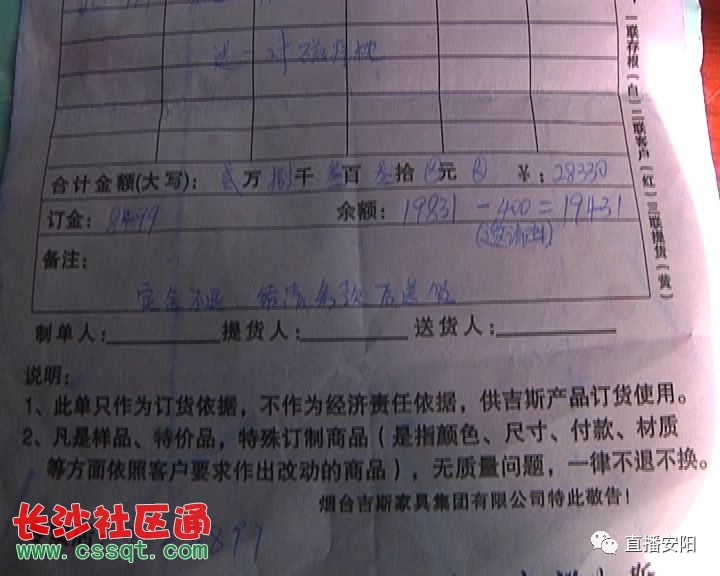 送一对磁疗枕
合计金额(大写): 贰万捌千叁百叁拾 元 ¥: 28330
订金: 8499 余额: 19831 - 400 = 19431
(邀请函)
备注:
定金不退 结清余款后送货
制单人: 提货人: 送货人:
说明:
1、此单只作为订货依据，不作为经济责任依据，供吉斯产品订货使用。
2、凡是样品、特价品，特殊订制商品（是指颜色、尺寸、付款、材质
等方面依照客户要求作出改动的商品），无质量问题，一律不退不换。
烟台吉斯家具集团有限公司特此敬告！
一联存根（白）二联客户（红）三联提货（黄）
长沙社区通
www.cssqt.com
897
直播安阳